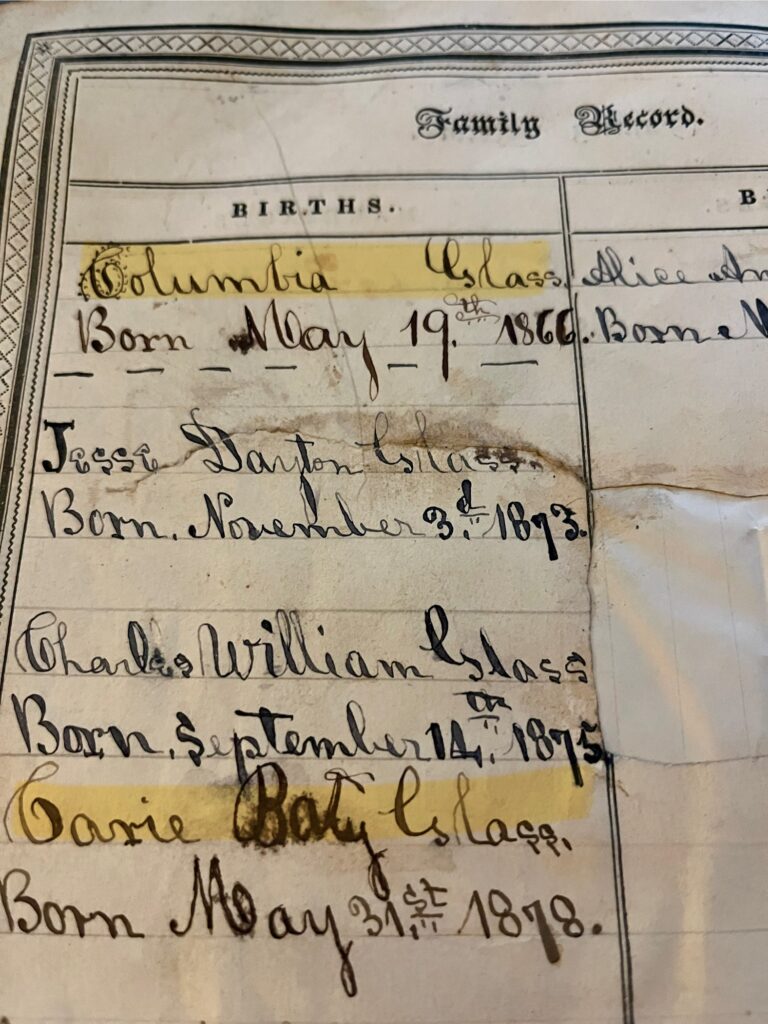 Family Record.
BIRTHS.
B
Columbia Glass.
Born May 19.th 1866.
Jesse Dayton Glass.
Born. November 3.d 1873.
Charles William Glass
Born. September 14th. 1875
Carie Baty Glass.
Born May 31.st 1878.
Alice An
Born M